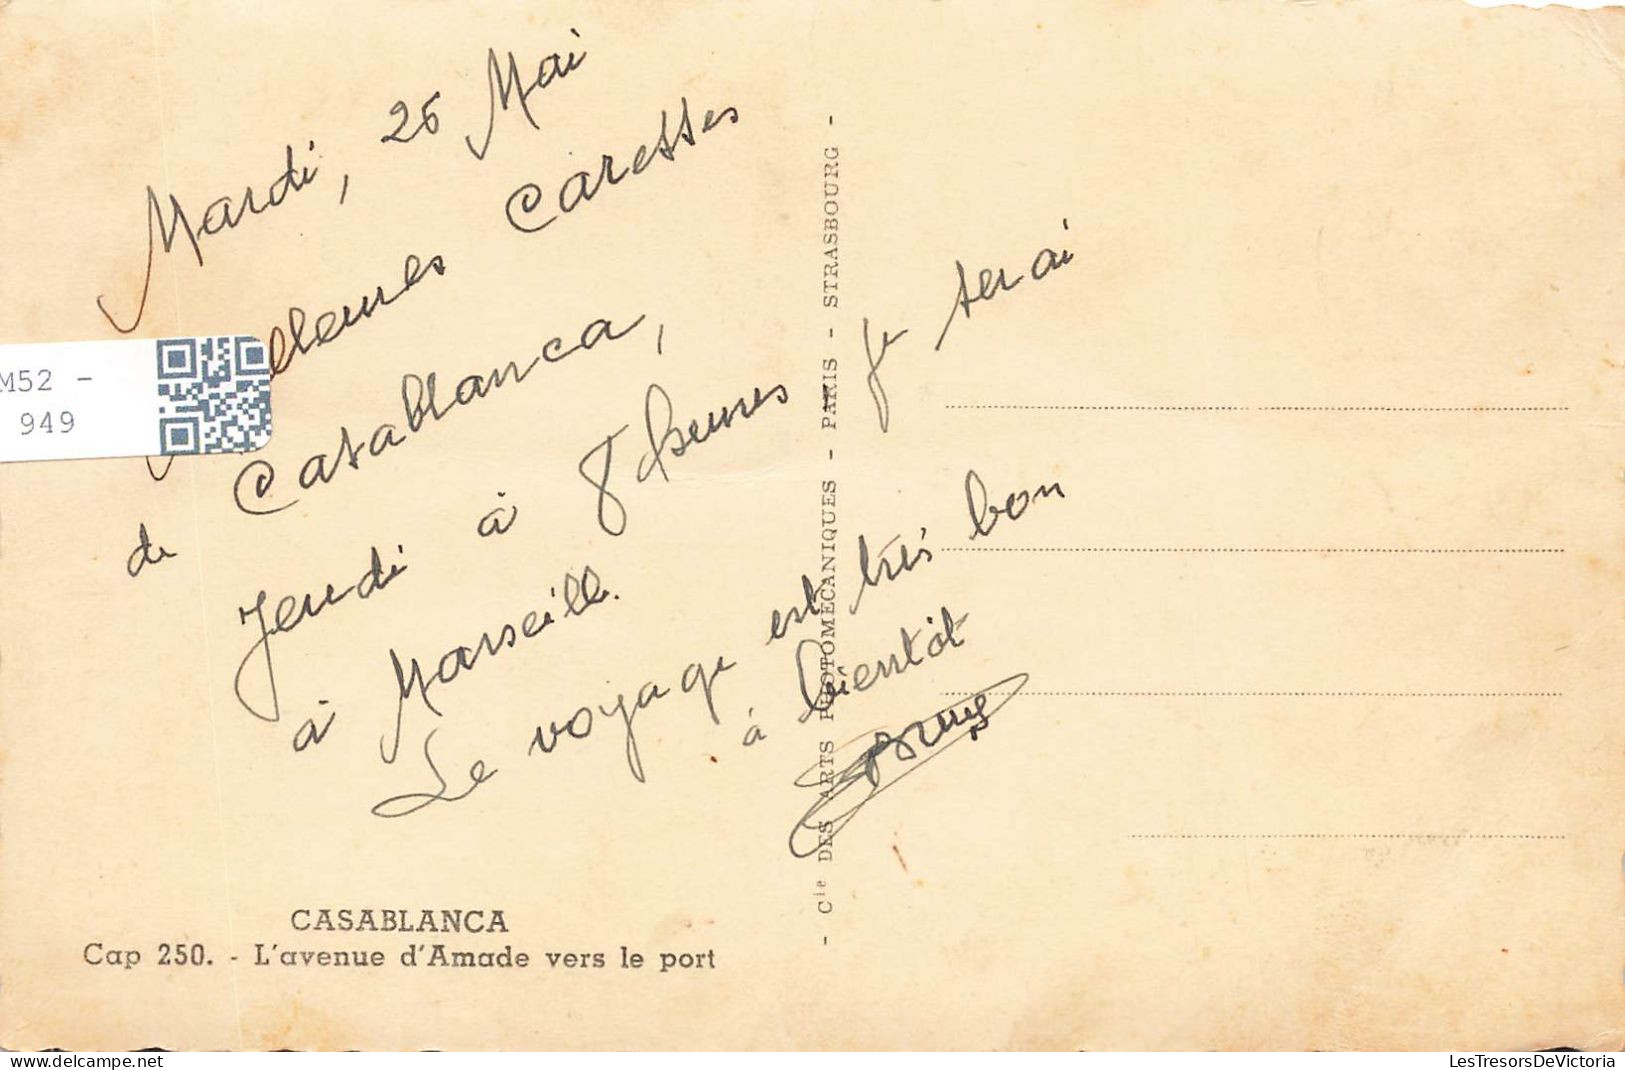 Mardi, 26 Mai
Caresses
de Casablanca,
Jeudi à 8 heures je serai
à Marseille.
Le voyage est très bon
à bientôt
CASABLANCA
Cap 250. - L'avenue d'Amade vers le port
- Cie DES ARTS PHOTOMÉCANIQUES - PARIS - STRASBOURG -
M52 -
949
LesTresorsDeVictoria